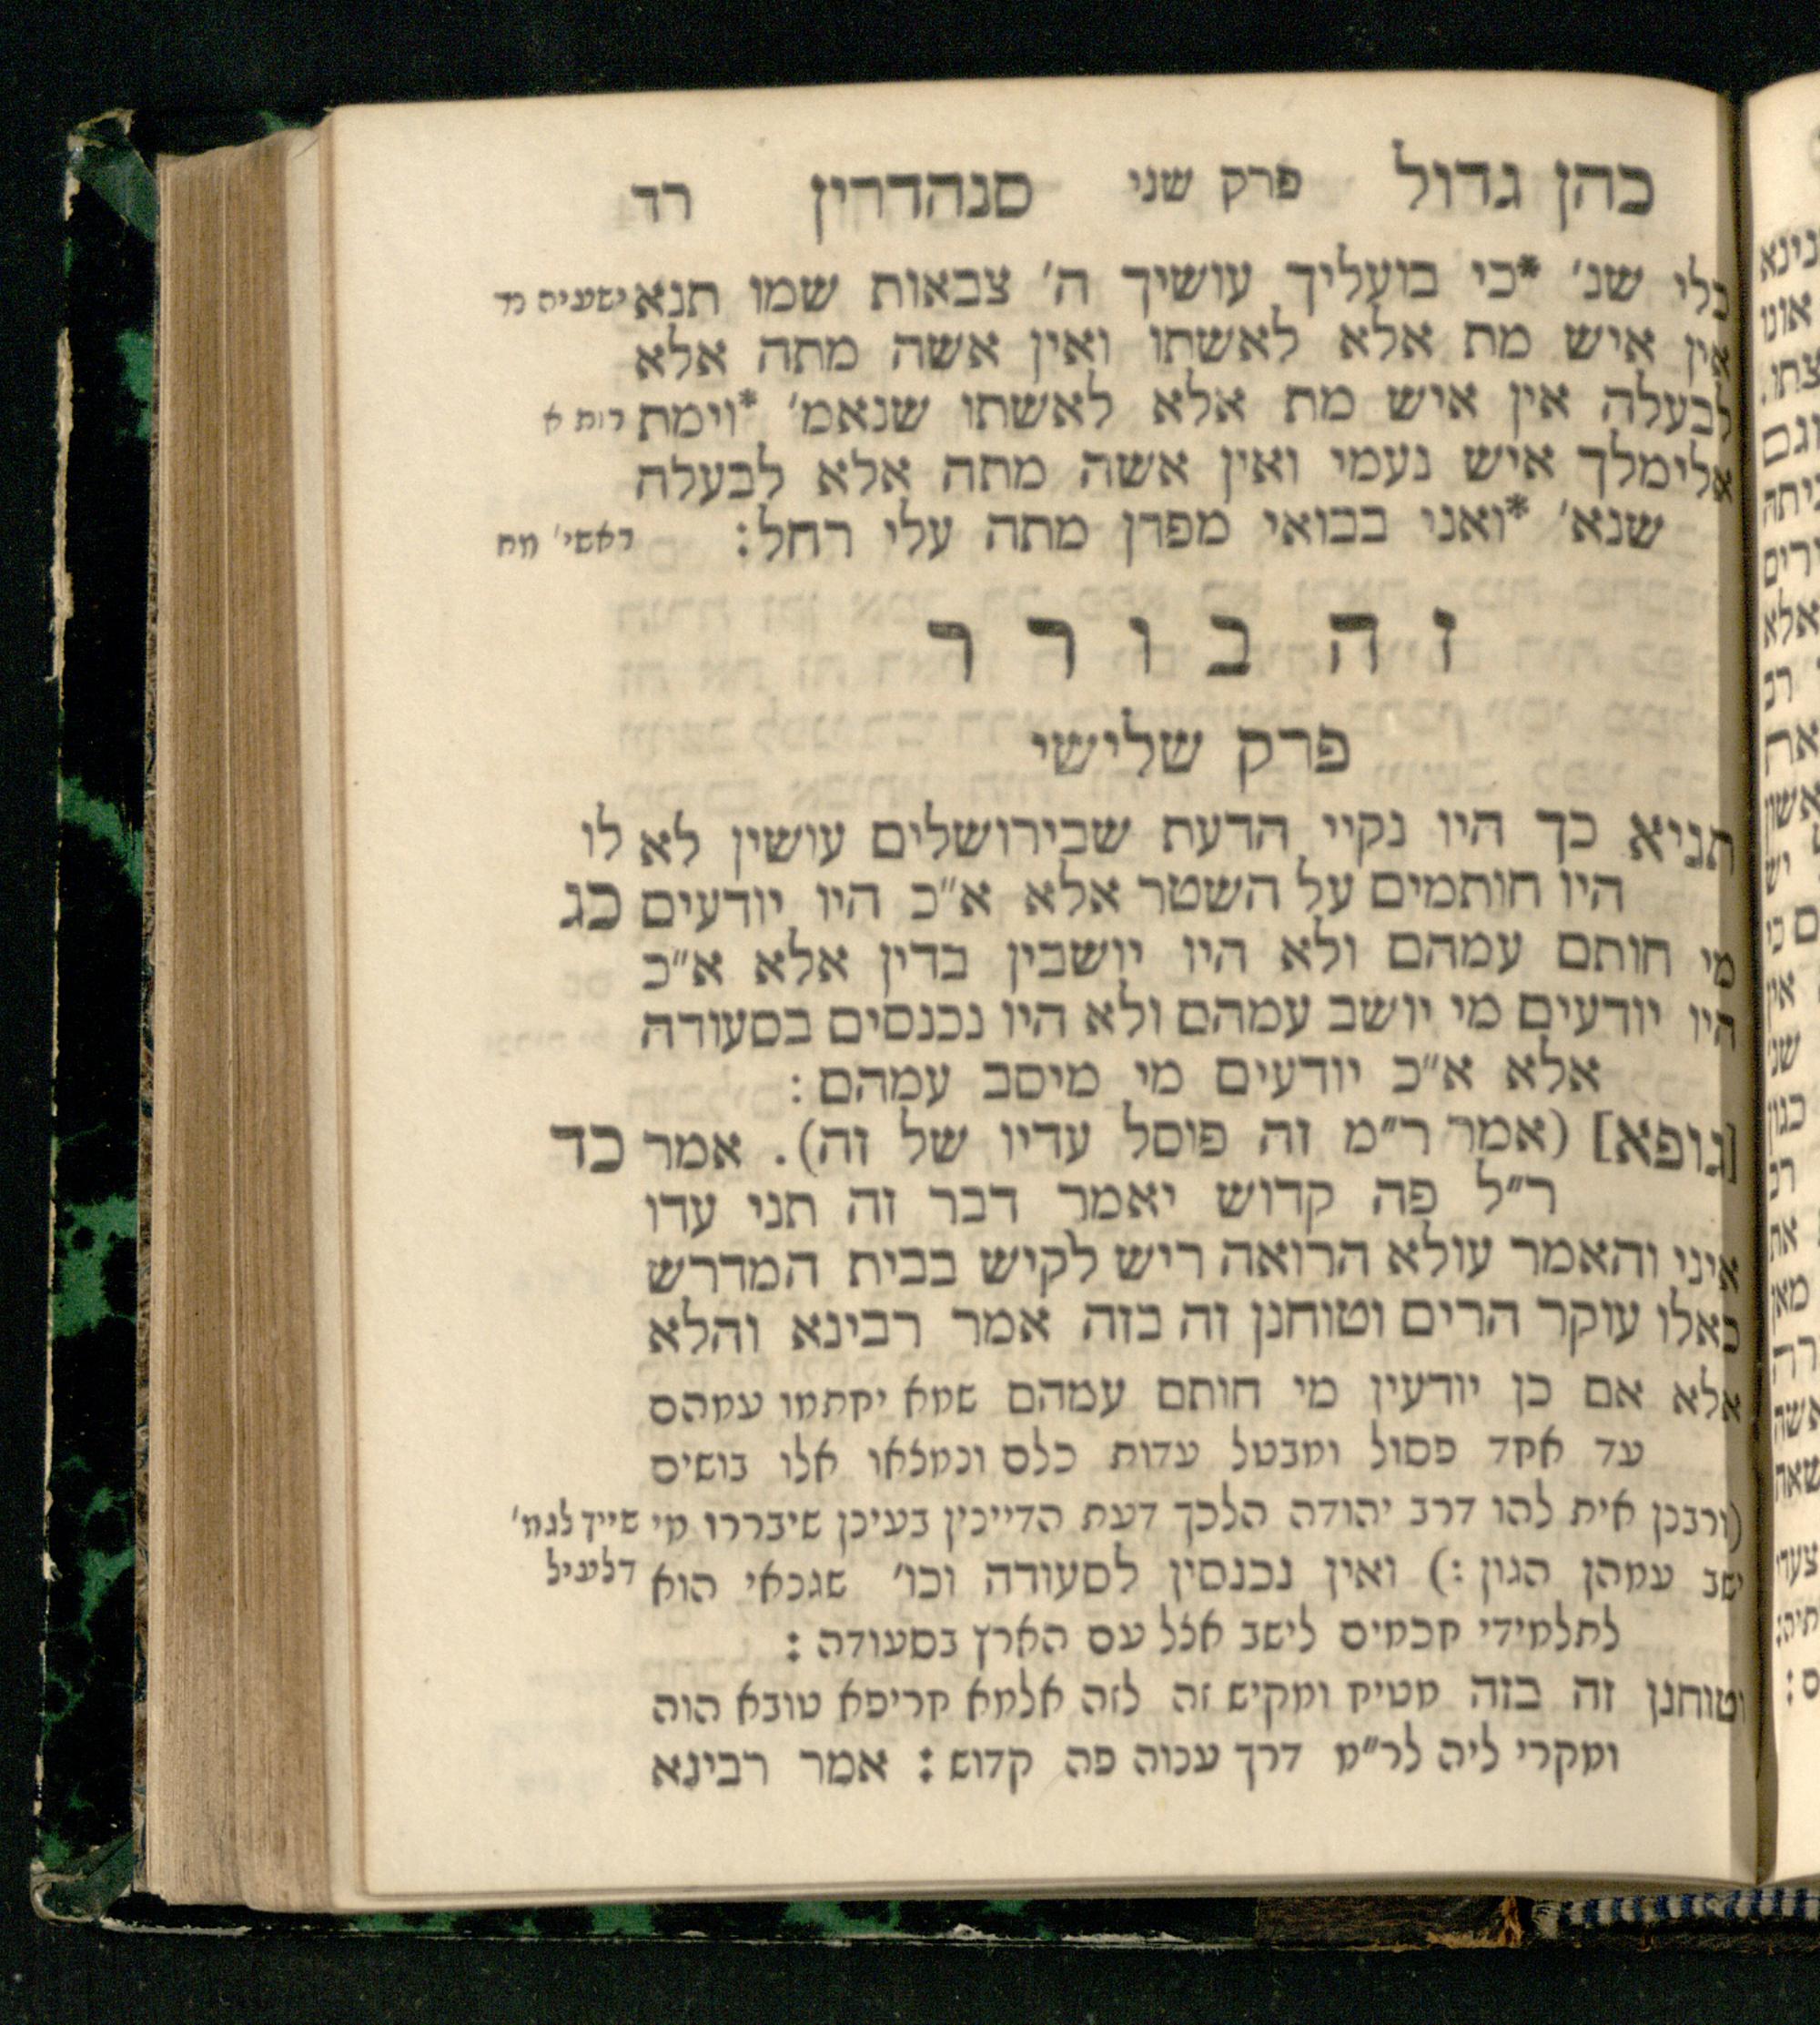 כהן גדול פרק שני סנהדרין רד
כלי שנ׳ *כי בועליך עושיך ה׳ צבאות שמו תנא ישעיה נד
אין איש מת אלא לאשתו ואין אשה מתה אלא
לבעלה אין איש מת אלא לאשתו שנאמ׳ *וימת רות א
אלימלך איש נעמי ואין אשה מתה אלא לבעלה
שנא׳ *ואני בבואי מפדן מתה עלי רחל: ראשי׳ מח
זה בורר
פרק שלישי
תניא כך היו נקיי הדעת שבירושלים עושין לא לו
היו חותמים על השטר אלא א״כ היו יודעים כג
מי חותם עמהם ולא היו יושבין בדין אלא א״כ
היו יודעים מי יושב עמהם ולא היו נכנסים בסעודה
אלא א״כ יודעים מי מיסב עמהם:
[גופא] (אמר ר״מ זה פוסל עדיו של זה). אמר כד
ר״ל פה קדוש יאמר דבר זה תני עדו
איני והאמר עולא הרואה ריש לקיש בבית המדרש
כאלו עוקר הרים וטוחנן זה בזה אמר רבינא והלא
אלא אם כן יודעין מי חותם עמהם שמא יחתמו עמהם
עד אחד פסול ומבטל עדות כלם ונמצאו אלו בושים
(ורבנן אית להו דרב יהודה הלכך דעת הדיינין בעינן שיבררו מי שייך לגמ׳
ישב עמהן הגון:) ואין נכנסין לסעודה וכו׳ שגנאי הוא דלעיל
לתלמידי חכמים לישב אצל עם הארץ בסעודה:
וטוחנן זה בזה מטיח ומקיש זה לזה אלמא חריפא טובא הוה
ומקרי ליה לר״מ דרך ענוה פה קדוש: אמר רבינא